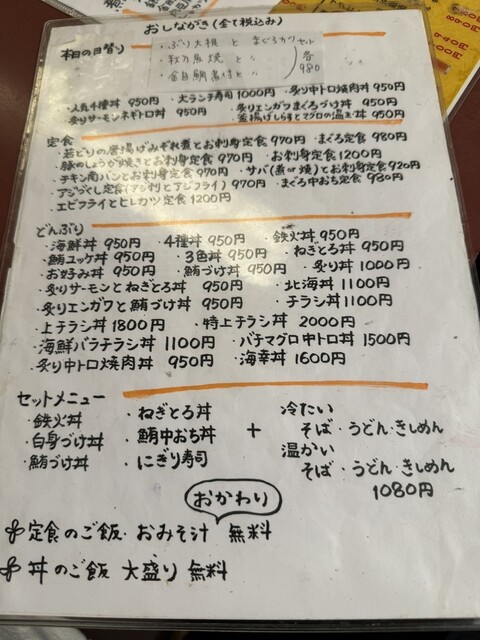 おしながき(全て税込み)
本日の日替り
・ぶり大根 と まぐろカツ セット
・秋刀魚焼 と 〃
・金目鯛煮付と 〃
各980
・人気4種丼 950円 ・大ランチ寿司 1000円 ・炙り中トロ焼肉丼 950円
・炙りサーモンネギトロ丼 950円 ・炙りエンガワまぐろづけ丼 950円
・釜揚げしらすとマグロの温玉丼 950円
定食
・若どりの唐揚げみぞれ煮とお刺身定食 970円 ・まぐろ定食 980円
・豚のしょうが焼きとお刺身定食 970円 ・お刺身定食 1200円
・チキン南バンとお刺身定食 970円 ・サバ(煮or焼)とお刺身定食 920円
・アジづくし定食(アジ刺しとアジフライ) 970円 ・まぐろ中おち定食 980円
・エビフライとヒレカツ定食 1200円
どんぶり
・海鮮丼 950円 ・4種丼 950円 ・鉄火丼 950円
・鮪ユッケ丼 950円 ・3色丼 950円 ・ねぎとろ丼 950円
・お好み丼 950円 ・鮪づけ丼 950円 ・炙り丼 1000円
・炙りサーモンとねぎとろ丼 950円 ・北海丼 1100円
・炙りエンガワと鮪づけ丼 950円 ・チラシ丼 1100円
・上チラシ丼 1800円 ・特上チラシ丼 2000円
・海鮮バラチラシ丼 1100円 ・バチマグロ中トロ丼 1500円
・炙り中トロ焼肉丼 950円 ・海幸丼 1600円
セットメニュー
・鉄火丼 ・ねぎとろ丼
・白身づけ丼 ・鮪中おち丼
・鮪づけ丼 ・にぎり寿司
+
冷たい
そば・うどん・きしめん
温かい
そば・うどん・きしめん
1080円
おかわり
定食のご飯・おみそ汁 無料
丼のご飯 大盛り 無料